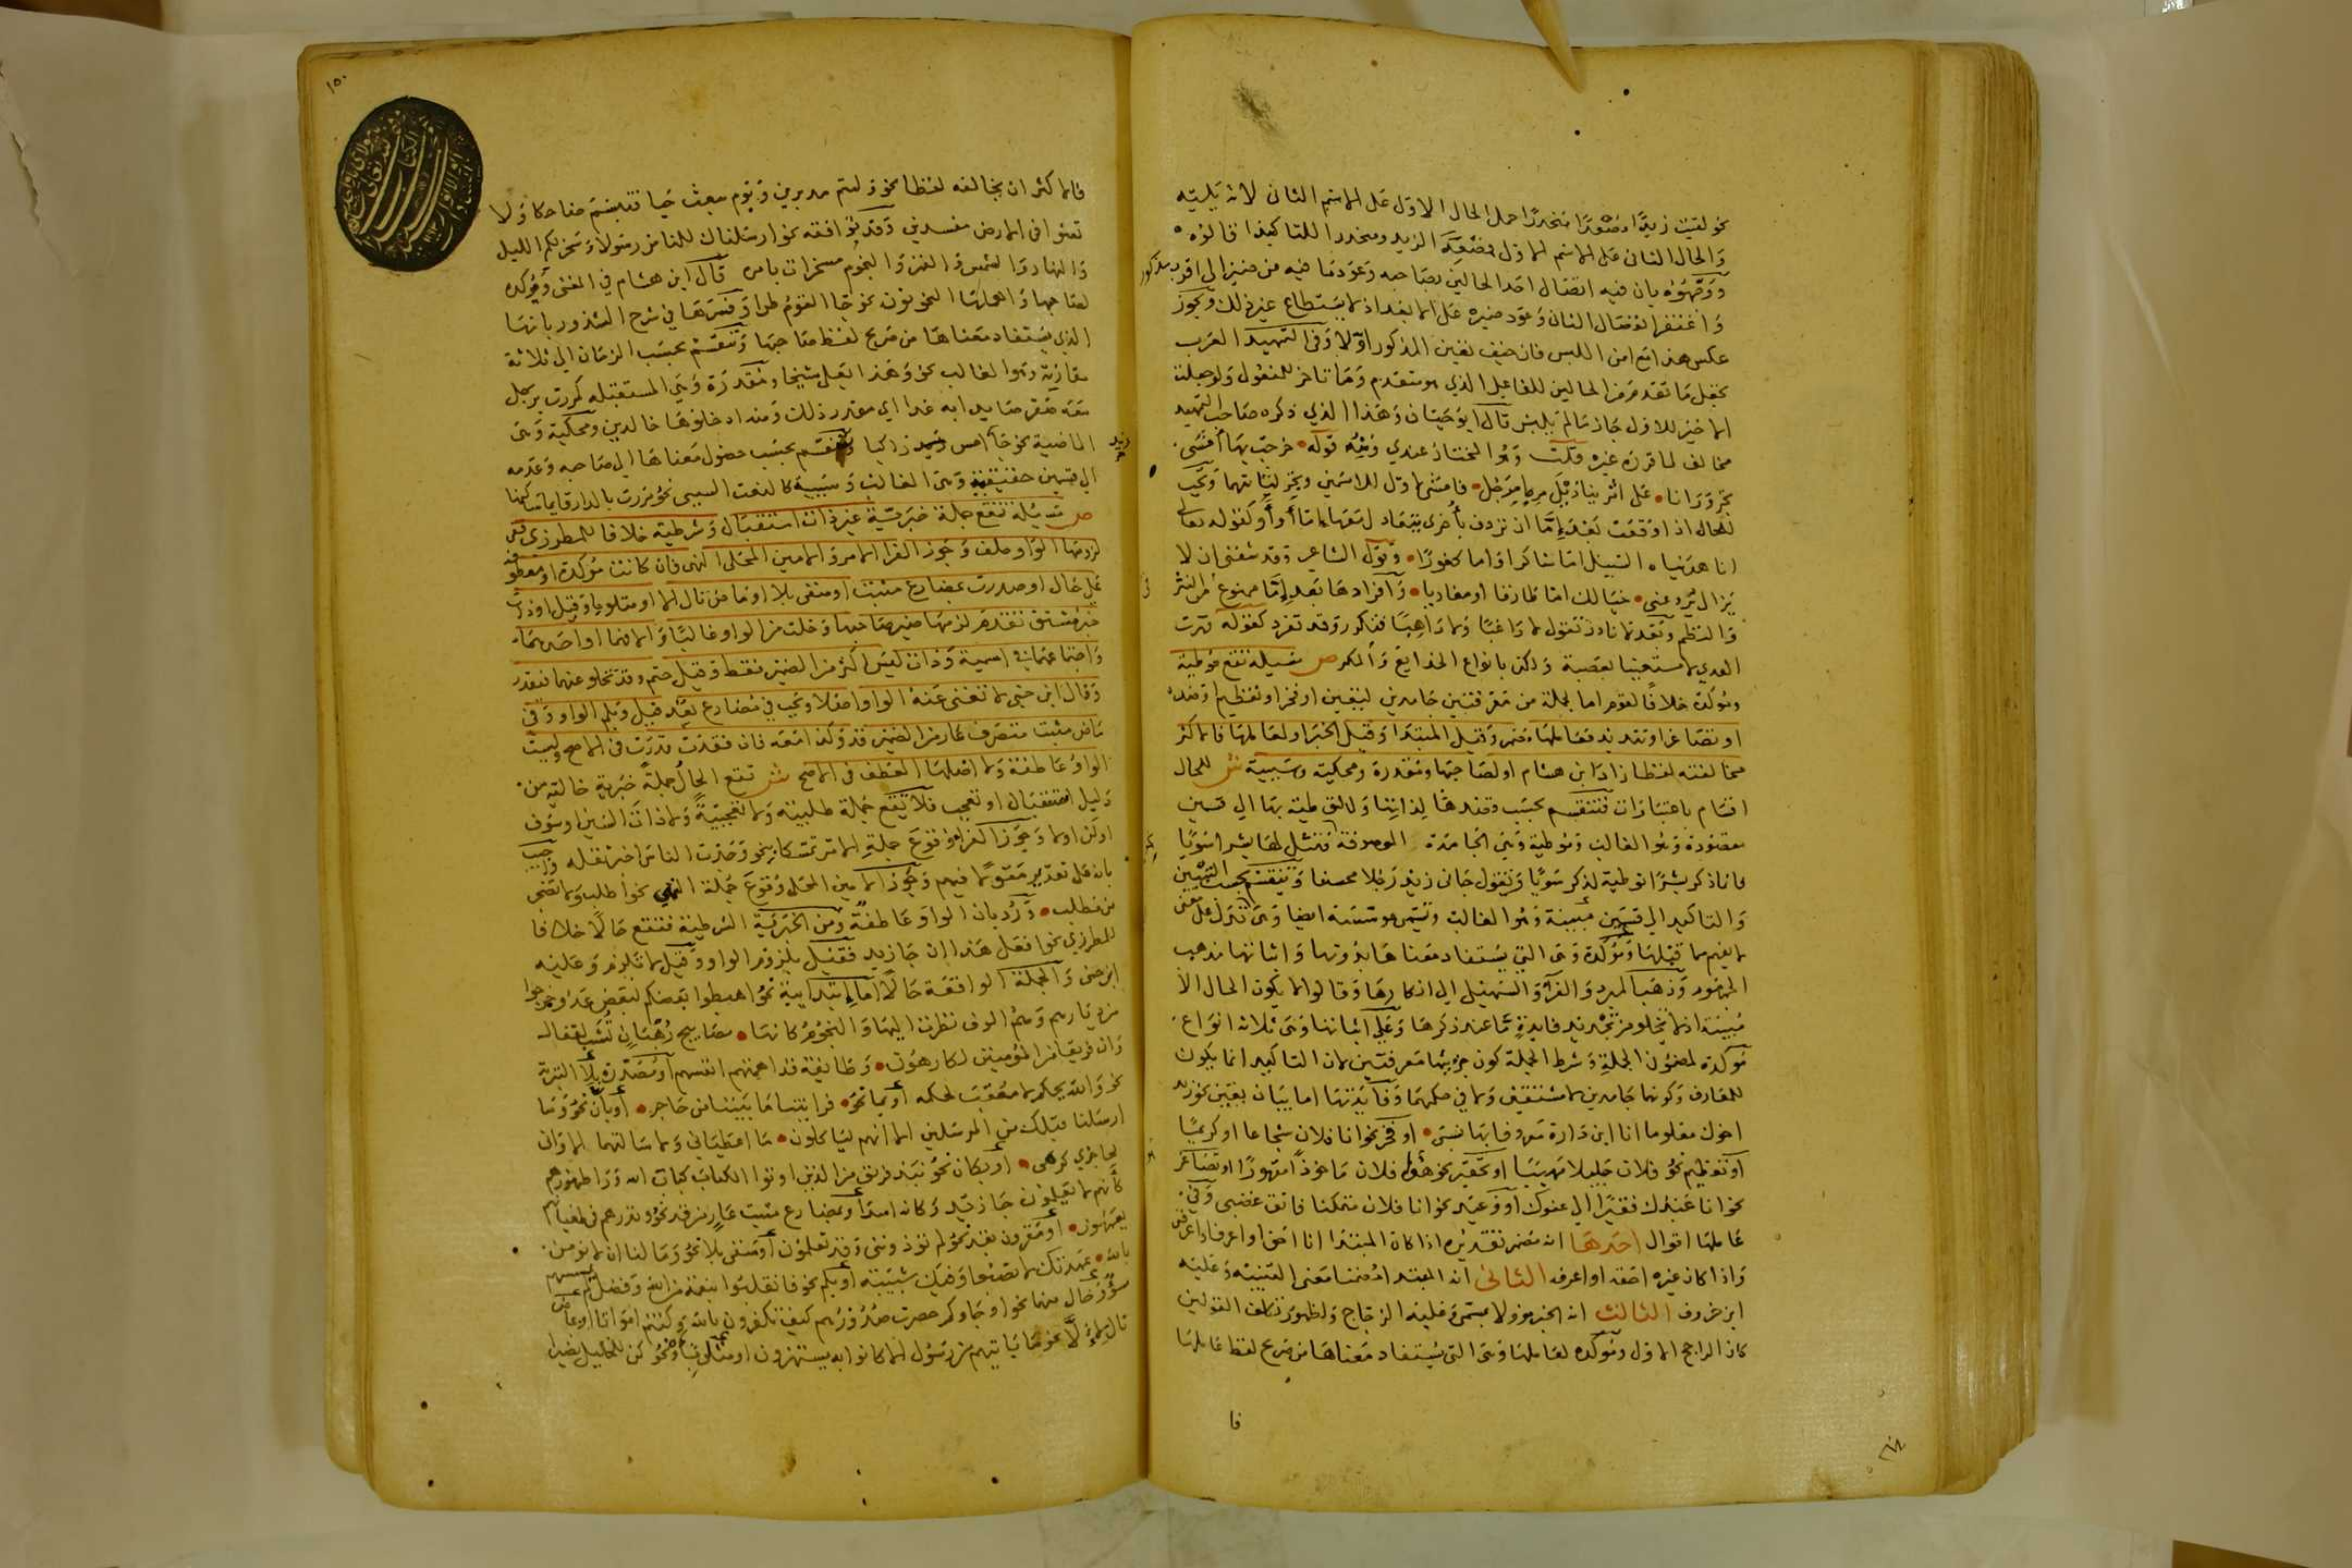 نحو لقيت زيدا مصعدا منحدرا حمل الحال الاول على الاسم الثاني لانه يليه
والحال الثاني على الاسم الاول فمصعدا لزيد ومنحدرا للتا كذا قالوه
ووجهوه بان فيه اتصال احد الحالين بصاحبه وعود ما فيه من ضمير الى اقرب مذكور
واغتفر انفصال الثاني وعود ضميره على الابعد اذ لا يستطاع غير ذلك ويجوز
عكس هذا مع امن اللبس فان خيف تعين المذكور اولا وفى التمهيد العرب
تجعل ما تقدم من الحالين للفاعل الذي هو متقدم وما تاخر للمفعول ولو جعلت
الاخير للاول جاز ما لم يلبس قال ابو حيان وهذا الذي ذكره صاحب التمهيد
مخالف لما قرره غيره قلت وهو المختار عندي ومنه قوله خرجت بها امشي
تجر ورانا على اثرينا ذيل مرط مرحل فامشي اول للاسمين وتجر لثانيهما ويجب
للحال اذا وقعت بعد إما ان تردف بأخرى معادا معها إما أو أو كقوله تعالى
انا هديناه السبيل اما شاكرا واما كفورا وقول الشاعر وقد شفني ان لا
يزال يروعني خيالك اما طارقا او مغاديا وافرادها بعد إما ممنوع في النثر
والنظم وبعد لا نادر تقول لا راغبا ولا راهبا فتكرر وقد تفرد كقوله قهرت
العدى لا مستعينا بعصبة ولكن بانواع الخدايع والمكر ص مسيلة تقع موطية
ومؤكدة خلافا لقوم اما لجملة من معرفتين جامدين لتعين او فخر او تعظيم او ضده
او تصاغر او تهديد فعاملها مضمر وقيل المبتدا وقيل الخبر او لعاملها فالاكثر
مخالفته لفظا زاد ابن هشام او لصاحبها ومقدرة ومحكية وسببية ش للحال
اقسام باعتبارات فتنقسم بحسب قصدها لذاتها وللتوطية بها الى قسمين
مقصودة وهو الغالب وموطية وهي الجامدة الموصوفة فتمثل لها بشرا سويا
فانما ذكر بشرا توطية لذكر سويا وتقول جاني زيد رجلا محسنا وتنقسم بحسب التبيين
والتاكيد الى قسمين مبينة وهو الغالب وتسمى موسسة ايضا وهي تدل على معنى
لا يفهم مما قبلها ومؤكدة وهي التي يستفاد معناها بدونها واثباتها مذهب
الجمهور وذهب المبرد والفرا والسهيلي الى انكارها وقالوا لا يكون الحال الا
مبينة اذ لا يخلو من تجديد فايدة ما عند ذكرها وعلى اثباتها وهي ثلاثة انواع
مؤكدة لمضمون الجملة وشرط الجملة كون جزيها معرفتين لان التاكيد انما يكون
للمعارف وكونها جامدين لا مشتقين ولا في حكمهما وفايدتها اما بيان تعين نحو زيد
اخوك معلوما انا ابن دارة معروفا بها نسبي او فخر نحو انا فلان شجاعا او كريما
او تعظيم نحو فلان جليلا مهيبا او تحقير نحو هو فلان ماخوذا مقهورا او تصاغر
نحو انا عبدك فقيرا الى عفوك او وعيد نحو انا فلان متمكنا فاتق غضبي وفي
عاملها اقوال احدها انه مضمر تقديره اذا كان المبتدا انا احق او اعرف او اعرفني
واذا كان غيره احقه او اعرفه الثاني انه المبتدا مضمنا معنى التنبيه وعليه
ابن خروف الثالث انه الخبر مؤولا بمسمى وعليه الزجاج ولظهور تكلف القولين
كان الراجح الاول ومؤكدة لعاملها وهي التي يستفاد معناها من صريح لفظ عاملها
فا
١٥٠
فالاكثر ان يخالفه لفظا نحو وليتم مدبرين ويوم يبعث حيا فتبسم ضاحكا ولا
تعثوا في الارض مفسدين وقد توافقه نحو ارسلناك للناس رسولا وسخر لكم الليل
والنهار والشمس والقمر والنجوم مسخرات بامره قال ابن هشام في المغني ومؤكدة
لصاحبها واهملها النحويون نحو جا القوم طرا وفسرها في شرح الشذور بانها
الذي يستفاد معناها من صريح لفظ صاحبها وتنقسم بحسب الزمان الى ثلاثة
مقارنة وهو الغالب نحو وهذا بعلي شيخا ومقدرة وهي المستقبلة كمررت برجل
معه صقر صايدا به غدا اي مقدر ذلك ومنه ادخلوها خالدين ومحكية وهي
الماضية نحو جا امس زيد راكبا وتنقسم بحسب حصول معناها الى صاحبه وعدمه
الى قسمين حقيقية وهي الغالب وسببية كالنعت السببي نحو مررت بالدار قايما ساكنها
ص مسيلة تقع جملة خبرية غير ذات استقبال وشرطية خلافا للمطرزي ففي
لزومها الواو خلف وجوز الفرا الامر والامين المحلى النهى فان كانت مؤكدة او معطوفة
على حال او صدرت بمضارع مثبت او منفي بلا او ما او ماض تال الا او متلو باو وقيل او ذات
خبر مشتق تقدم لزمها ضمير صاحبها وخلت من الواو غالبا والا فهما او احدهما
واجتماعهما في اسمية وذات ليس اكثر من الضمير فقط وقيل حتم وقد تخلو عنهما فيقدر
وقال ابن جني لا تغني عنه الواو اصلا ويجب في مضارع بقد قيل ولم الواو وفي
ماض مثبت متصرف عار من الضمير قد وكذا معه فان فقدت قدرت في الاصح وليست
الواو عاطفة ولا اصلها العطف في الاصح ش تقع الحال جملة خبرية خالية من
دليل استقبال او تعجب فلا تقع جملة طلبية ولا تعجبية ولا ذات السين او سوف
او لن او لا وجوز الفرا وقوع جملة الامر تمسكا بنحو وجدت الناس اخبر تقله واجيب
بانه على تقدير مقولا فيهم وجوز الامين المحلى وقوع جملة النهي نحو اطلب ولا تضجر
من مطلب ورد بان الواو عاطفة ومن الخبرية الشرطية فتقع حالا خلافا
للمطرزي نحو افعل هذا إن جا زيد فقيل يلزوم الواو وقيل لا تلزم وعليه
ابن جني والجملة الواقعة حالا اما ابتدايية نحو اهبطوا بعضكم لبعض عدو خرجوا
من ديارهم وهم الوف نظرت اليها والنجوم كانها مصابيح رهبان تشب لقفال
وان فريقا من المؤمنين لكارهون وطايفة قد اهمتهم انفسهم او مصدرة بلا التبرئة
نحو والله يحكم لا معقب لحكمه أو بما نحو فرايتنا ما بيننا من حاجز أو بان نحو وما
ارسلنا قبلك من المرسلين الا انهم لياكلون ما اعطياني ولا سالتهما الا واني
لحاجزي كرمي أو بكان نحو نبذ فريق من الذين اوتوا الكتاب كتاب الله ورا ظهورهم
كانهم لا يعلمون جا زيد وكانه اسد أو بمضارع مثبت عار من قد نحو ونذرهم في طغيانهم
يعمهون أو مقرون بقد نحو لم تؤذونني وقد تعلمون أو منفي بلا نحو وما لنا ان لا نؤمن
بالله عهدتك لا تصبو وفيك شبيبة أو بلم نحو فانقلبوا بنعمة من الله وفضل لم يمسسهم
سؤ او خال منها نحو او جاوكم حصرت صدورهم كيف تكفرون بالله وكنتم امواتا او ماض
تال إلا نحو ما ياتيهم من رسول الا كانوا به يستهزون او متلو بأو نحو كن للخليل نصيرا